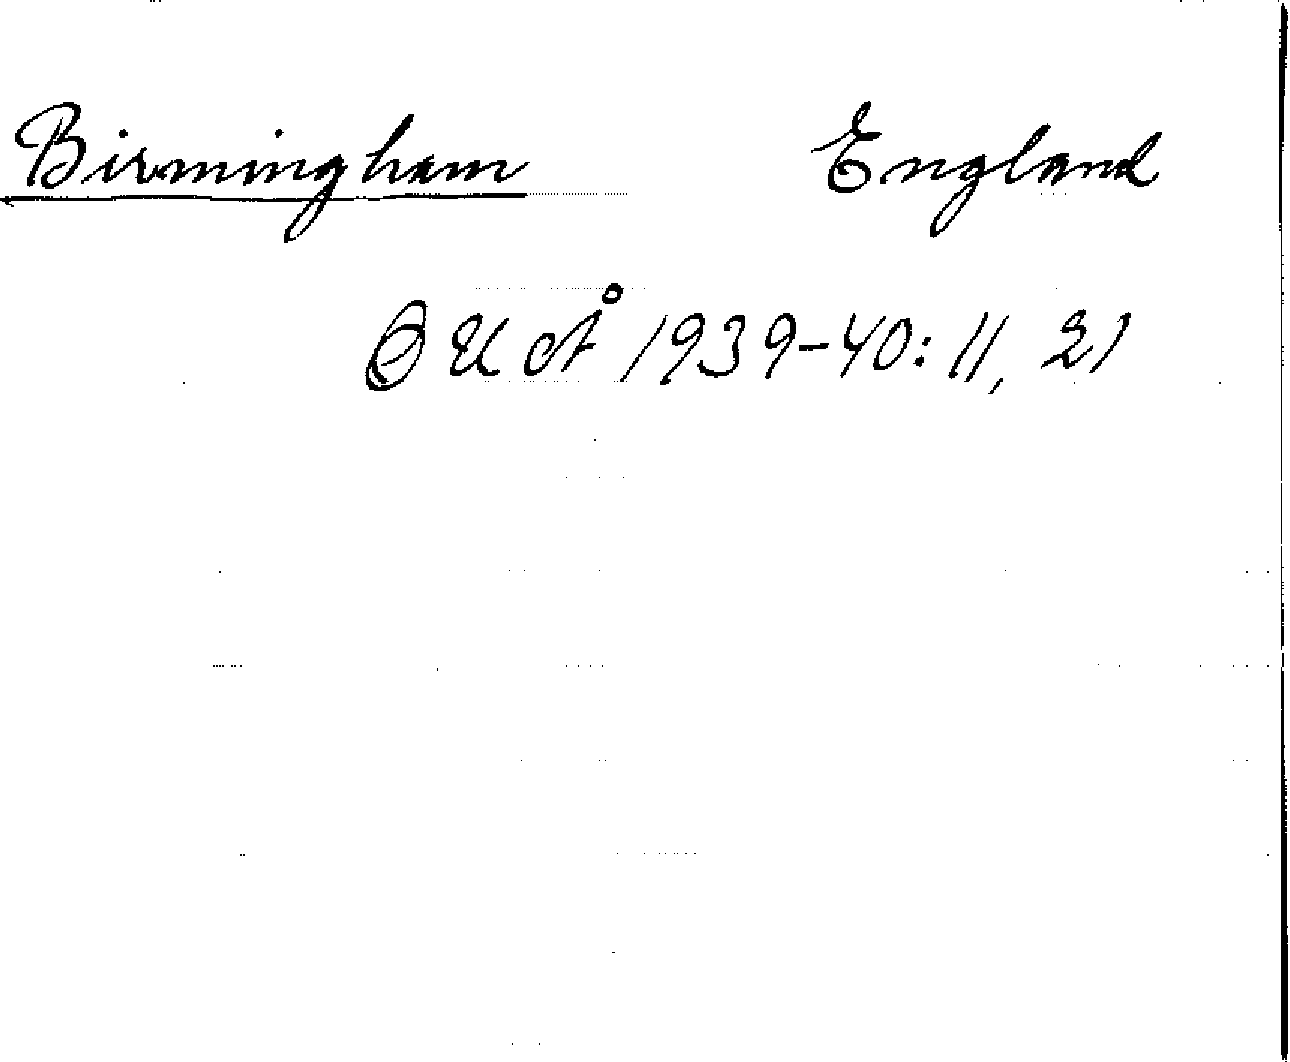 Birmingham England
OUÅ 1939-40: 11, 21